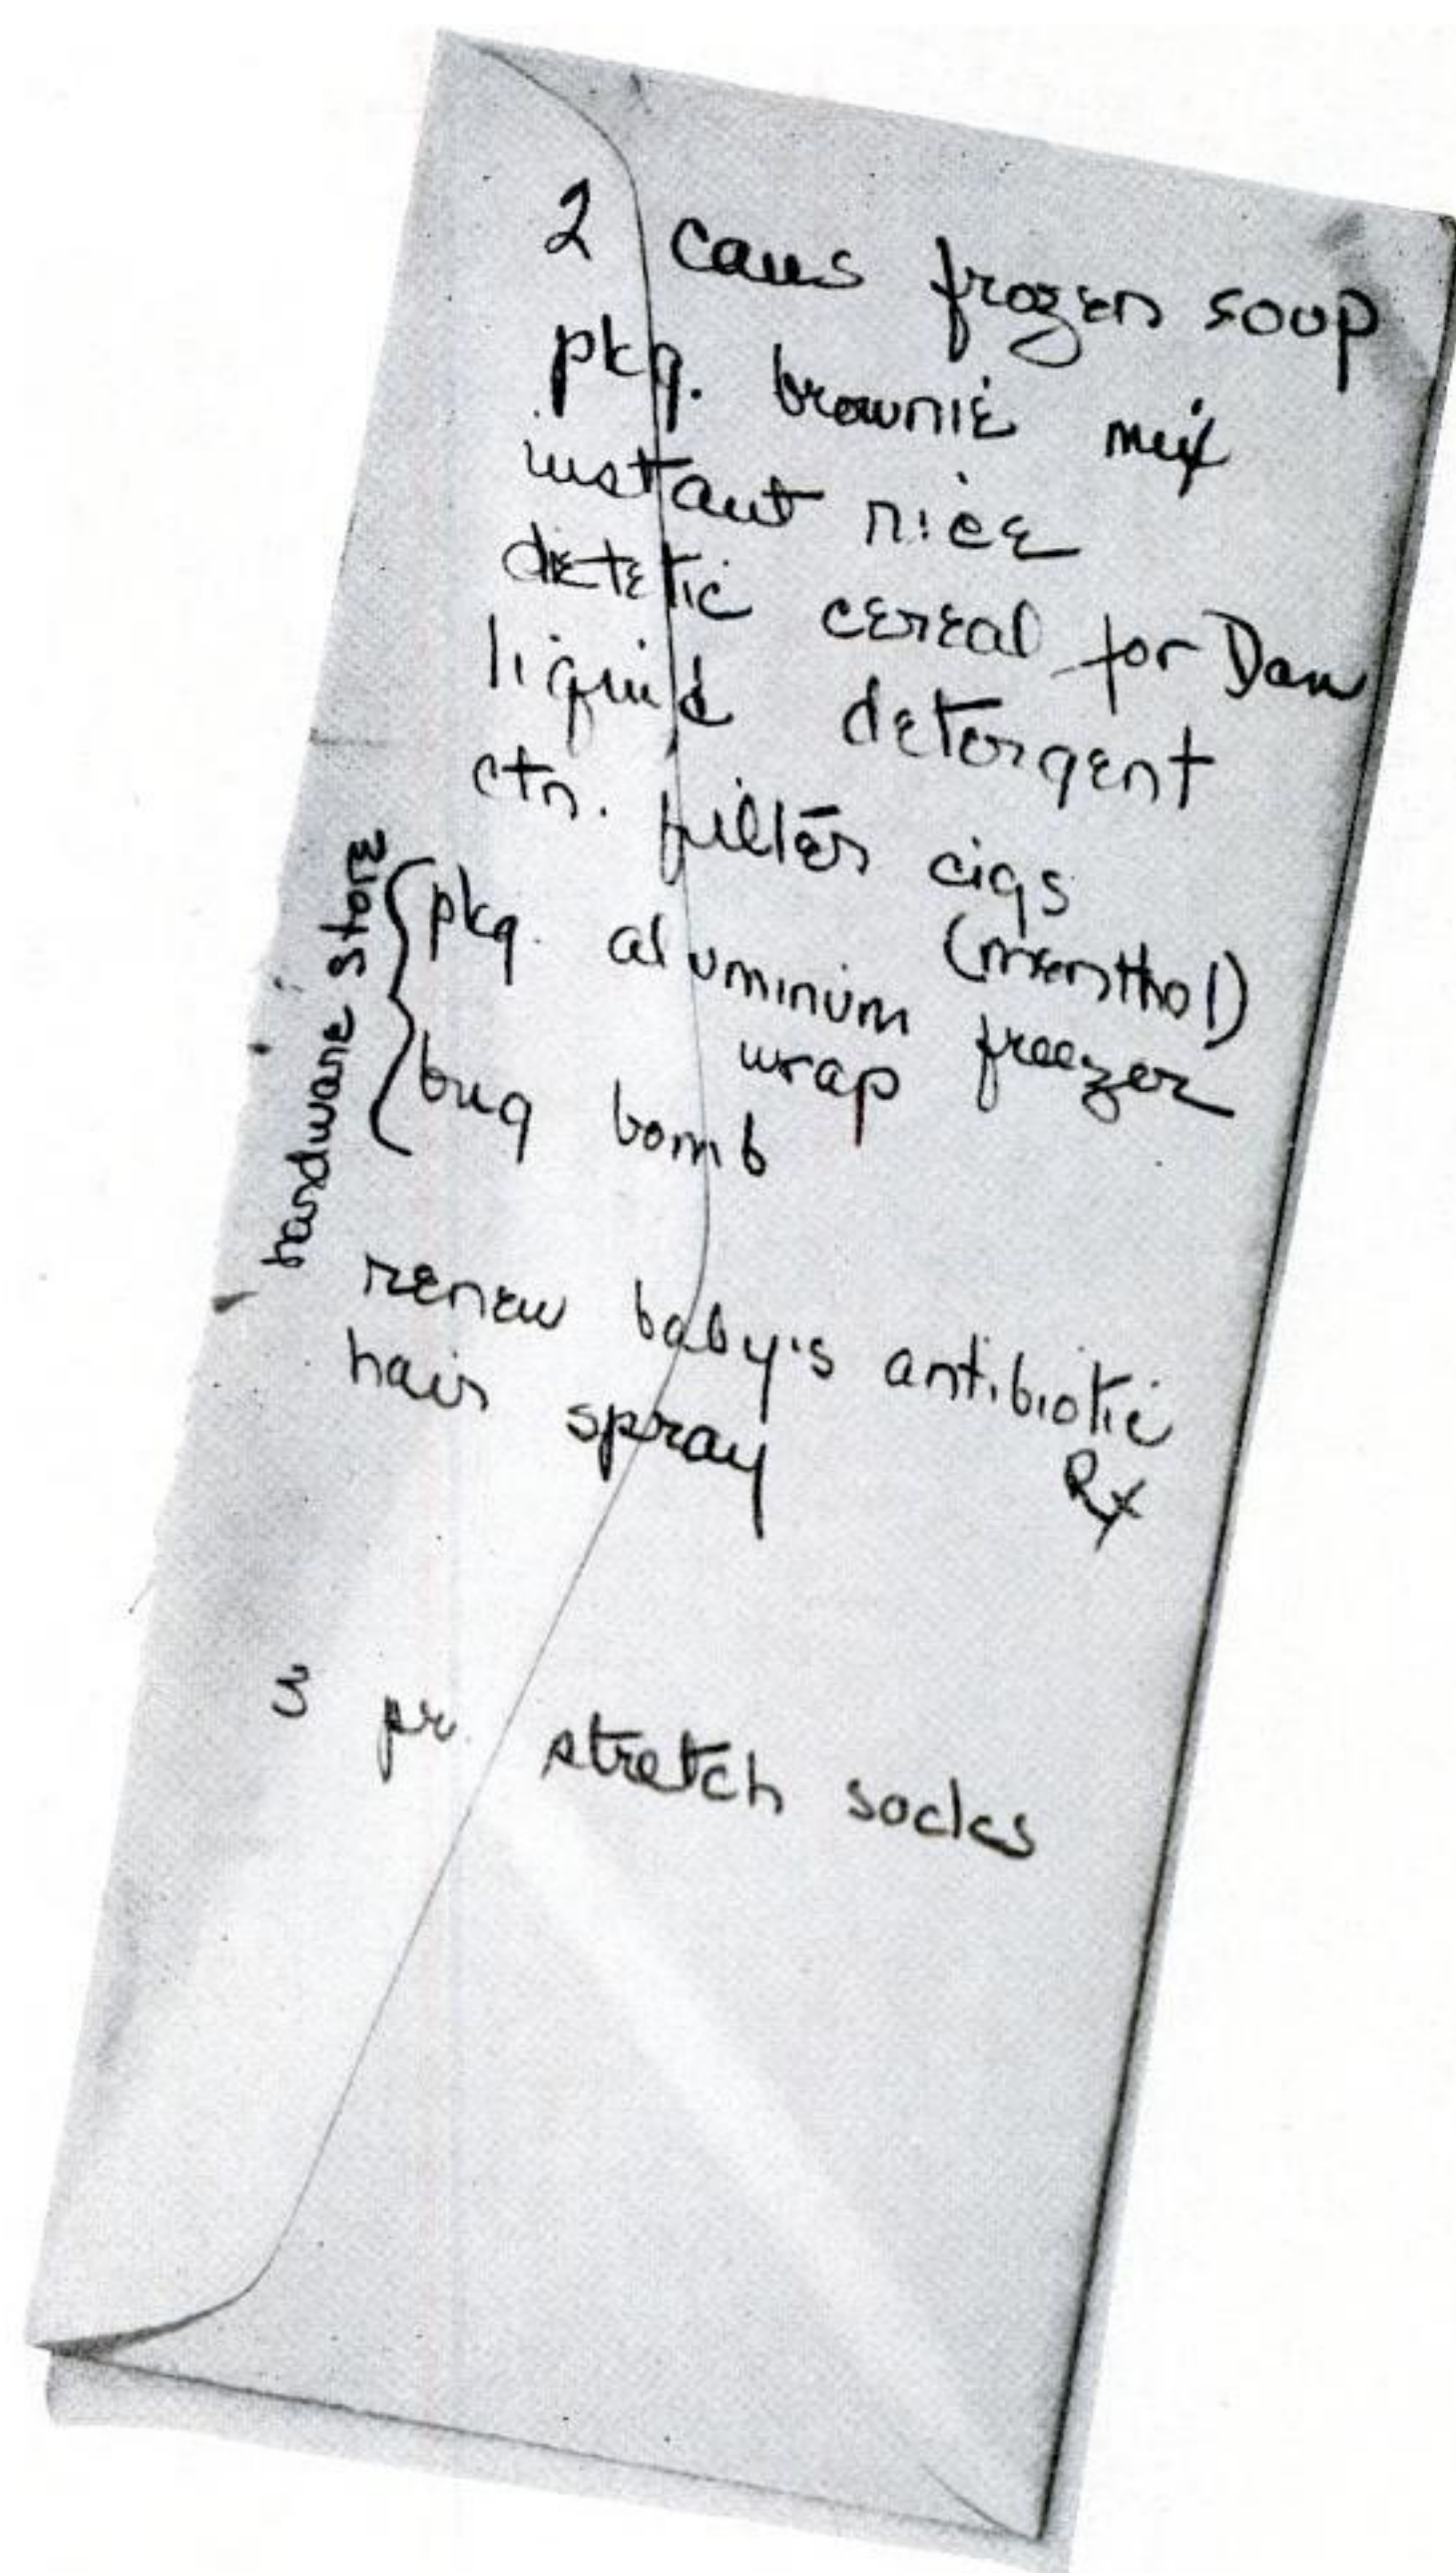 2 cans frozen soup
pkg. brownie mix
instant rice
dietetic cereal for Dan
liquid detergent
ctn. filter cigs
(menthol)
hardware store
pkg. aluminum freezer
wrap
bug bomb
renew baby's antibiotic
Rx
hair spray
3 pr. stretch socks